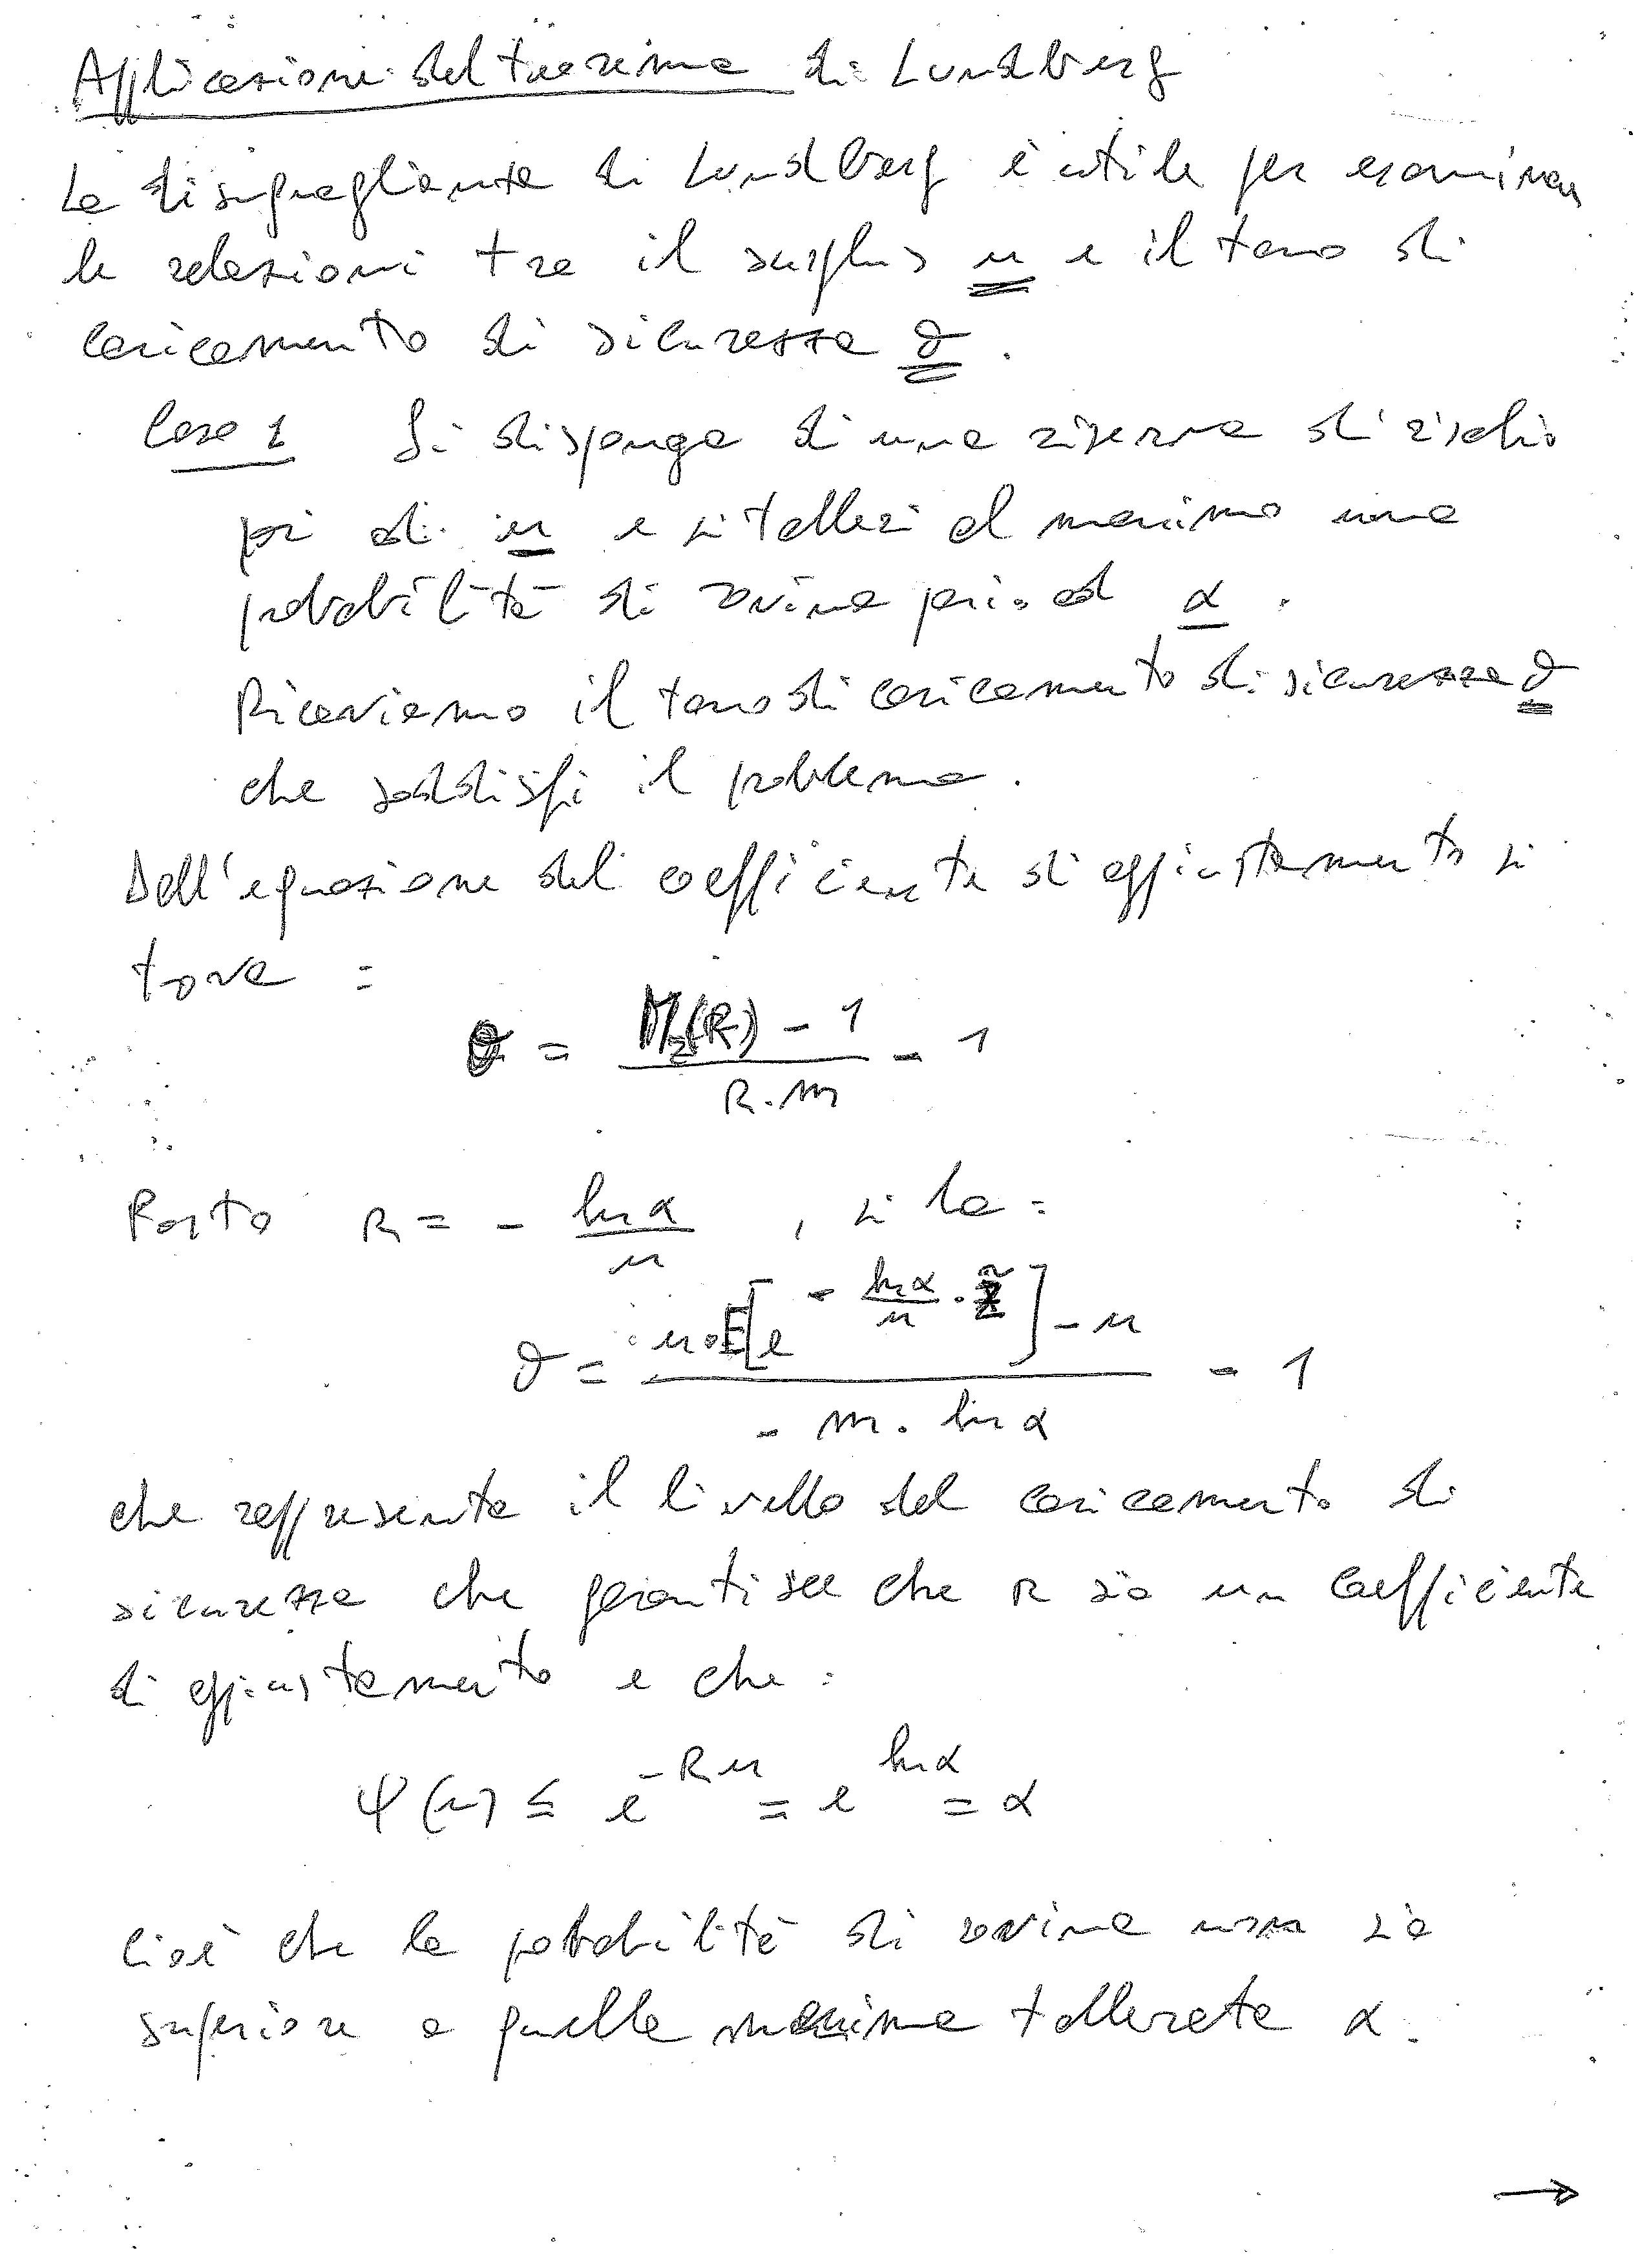 Applicazione del teorema di Lundberg
La disuguaglianza di Lundberg è utile per esaminare
le relazioni tra il surplus u e il tasso di
caricamento di sicurezza ϑ.
Caso 1 Si disponga di una riserva di rischio
pari ad u e si tolleri al massimo una
probabilità di rovina pari ad α.
Ricaviamo il tasso di caricamento di sicurezza ϑ
che soddisfi il problema.
Dall'equazione del coefficiente di aggiustamento si
trova :
ϑ = (M_Z(R) - 1) / (R · m) - 1
Posto R = - ln α / u , si ha :
ϑ = (u · E[e^{- (ln α / u) · Z̃}] - u) / (- m · ln α) - 1
che rappresenta il livello del caricamento di
sicurezza che garantisce che R sia un coefficiente
di aggiustamento e che :
ψ(u) ≤ e^{-Ru} = e^{ln α} = α
cioè che la probabilità di rovina non sia
superiore a quella massima tollerata α.
→